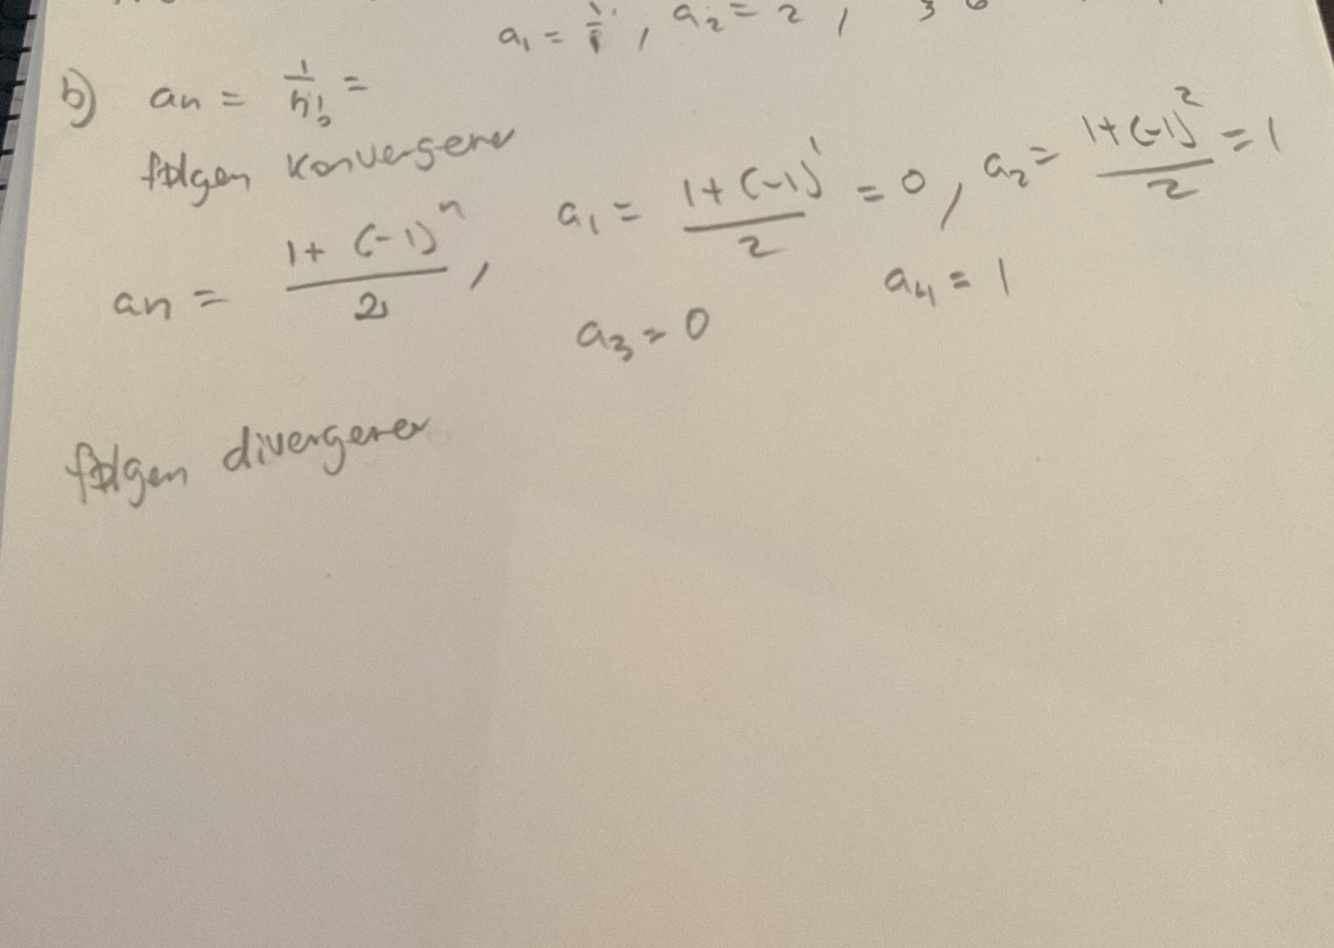 a₁ = 1/1, a₂ = 2, 3 6
b) an = 1/n! =
følgen konvergerer
an = (1 + (-1)ⁿ)/2, a₁ = (1 + (-1)¹)/2 = 0, a₂ = (1 + (-1)²)/2 = 1
a₃ = 0 a₄ = 1
følgen divergerer